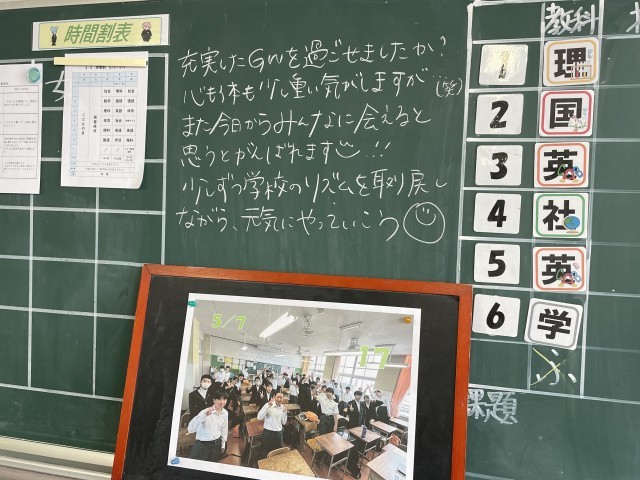 時間割表
充実したGWを過ごせましたか?
心も体も少し重い気がしますが…(笑)
また今日からみんなに会えると
思うとがんばれます!!!
少しずつ学校のリズムを取り戻し
ながら、元気にやっていこう
教科
1 理
2 国
3 英
4 社
5 英
6 学
課題
5/7
17